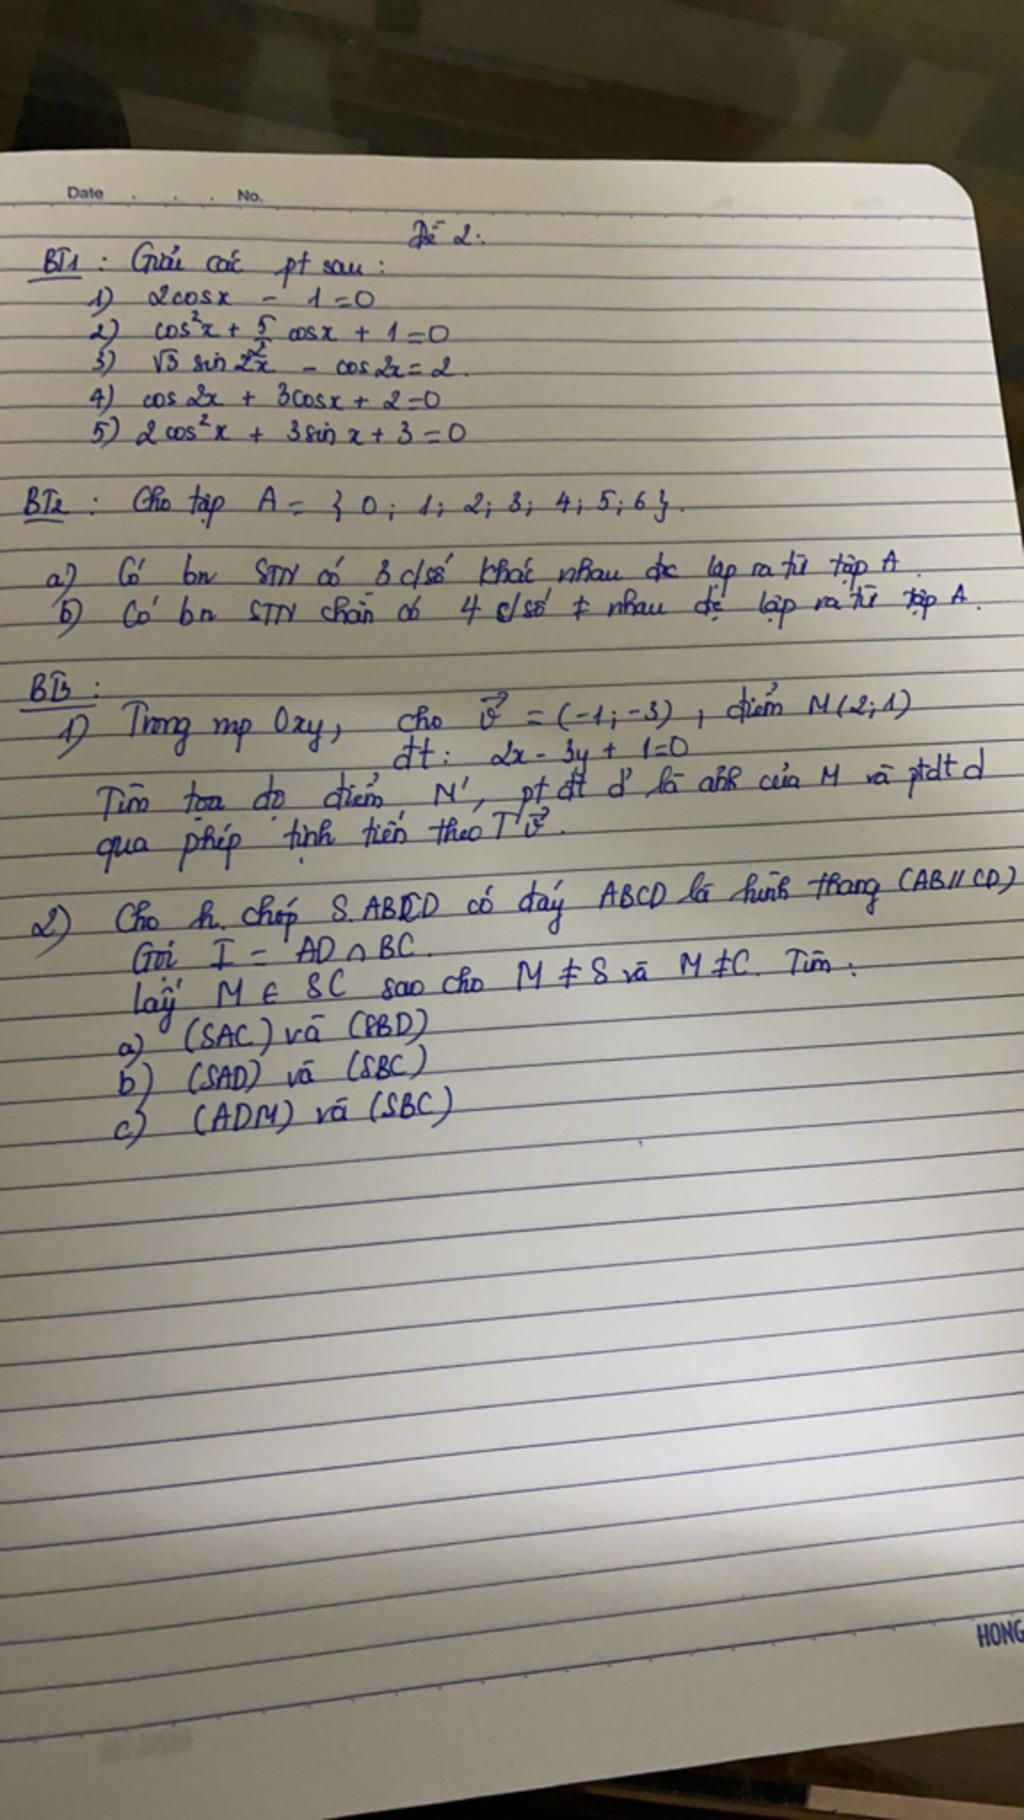 Date . . . No.
Đề 2:
BT1 : Giải các pt sau :
1) 2cosx - 1 = 0
2) cos²x + 5/2 cosx + 1 = 0
3) √3 sin 2x - cos 2x = 2.
4) cos 2x + 3cosx + 2 = 0
5) 2 cos²x + 3 sin x + 3 = 0
BT2 : Cho tập A = { 0 ; 1 ; 2 ; 3 ; 4 ; 5 ; 6 }.
a) Có bn STN có 3 c/số khác nhau đc lập ra từ tập A.
b) Có bn STN chẵn có 4 c/số ≠ nhau đc lập ra từ tập A.
BT3 :
1) Trong mp Oxy, cho v⃗ = (-1; -3), điểm M(2; 1)
đt: 2x - 3y + 1 = 0
Tìm tọa độ điểm N', pt đt d' là ảnh của M và ptđt d
qua phép tịnh tiến theo T v⃗.
2) Cho h. chóp S.ABCD có đáy ABCD là hình thang (AB // CD)
Gọi I = AD ∩ BC.
Lấy M ∈ SC sao cho M ≠ S và M ≠ C. Tìm :
a) (SAC) và (SBD)
b) (SAD) và (SBC)
c) (ADM) và (SBC)
HONG